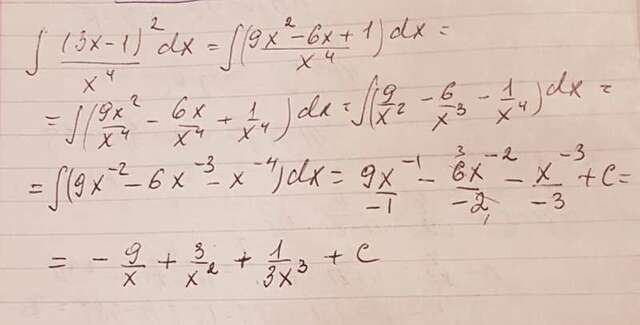 ∫ (3x-1)² dx / x⁴ = ∫ (9x² - 6x + 1) dx / x⁴ =
= ∫ (9x²/x⁴ - 6x/x⁴ + 1/x⁴) dx = ∫ (9/x² - 6/x³ - 1/x⁴) dx =
= ∫ (9x⁻² - 6x⁻³ - x⁻⁴) dx = 9x⁻¹/-1 - ³6x⁻²/-2, - x⁻³/-3 + C =
= - 9/x + 3/x² + 1/3x³ + C